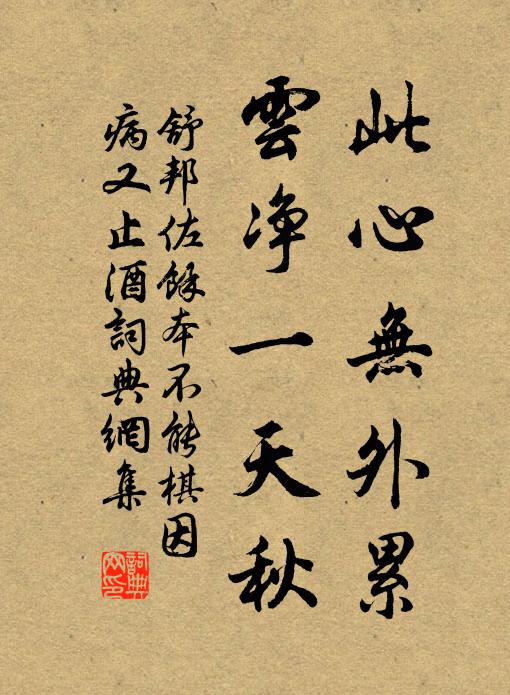 此心無外累
雲净一天秋
舒邦佐餘本不能棋因
病又止酒詞典網集
詞典網印